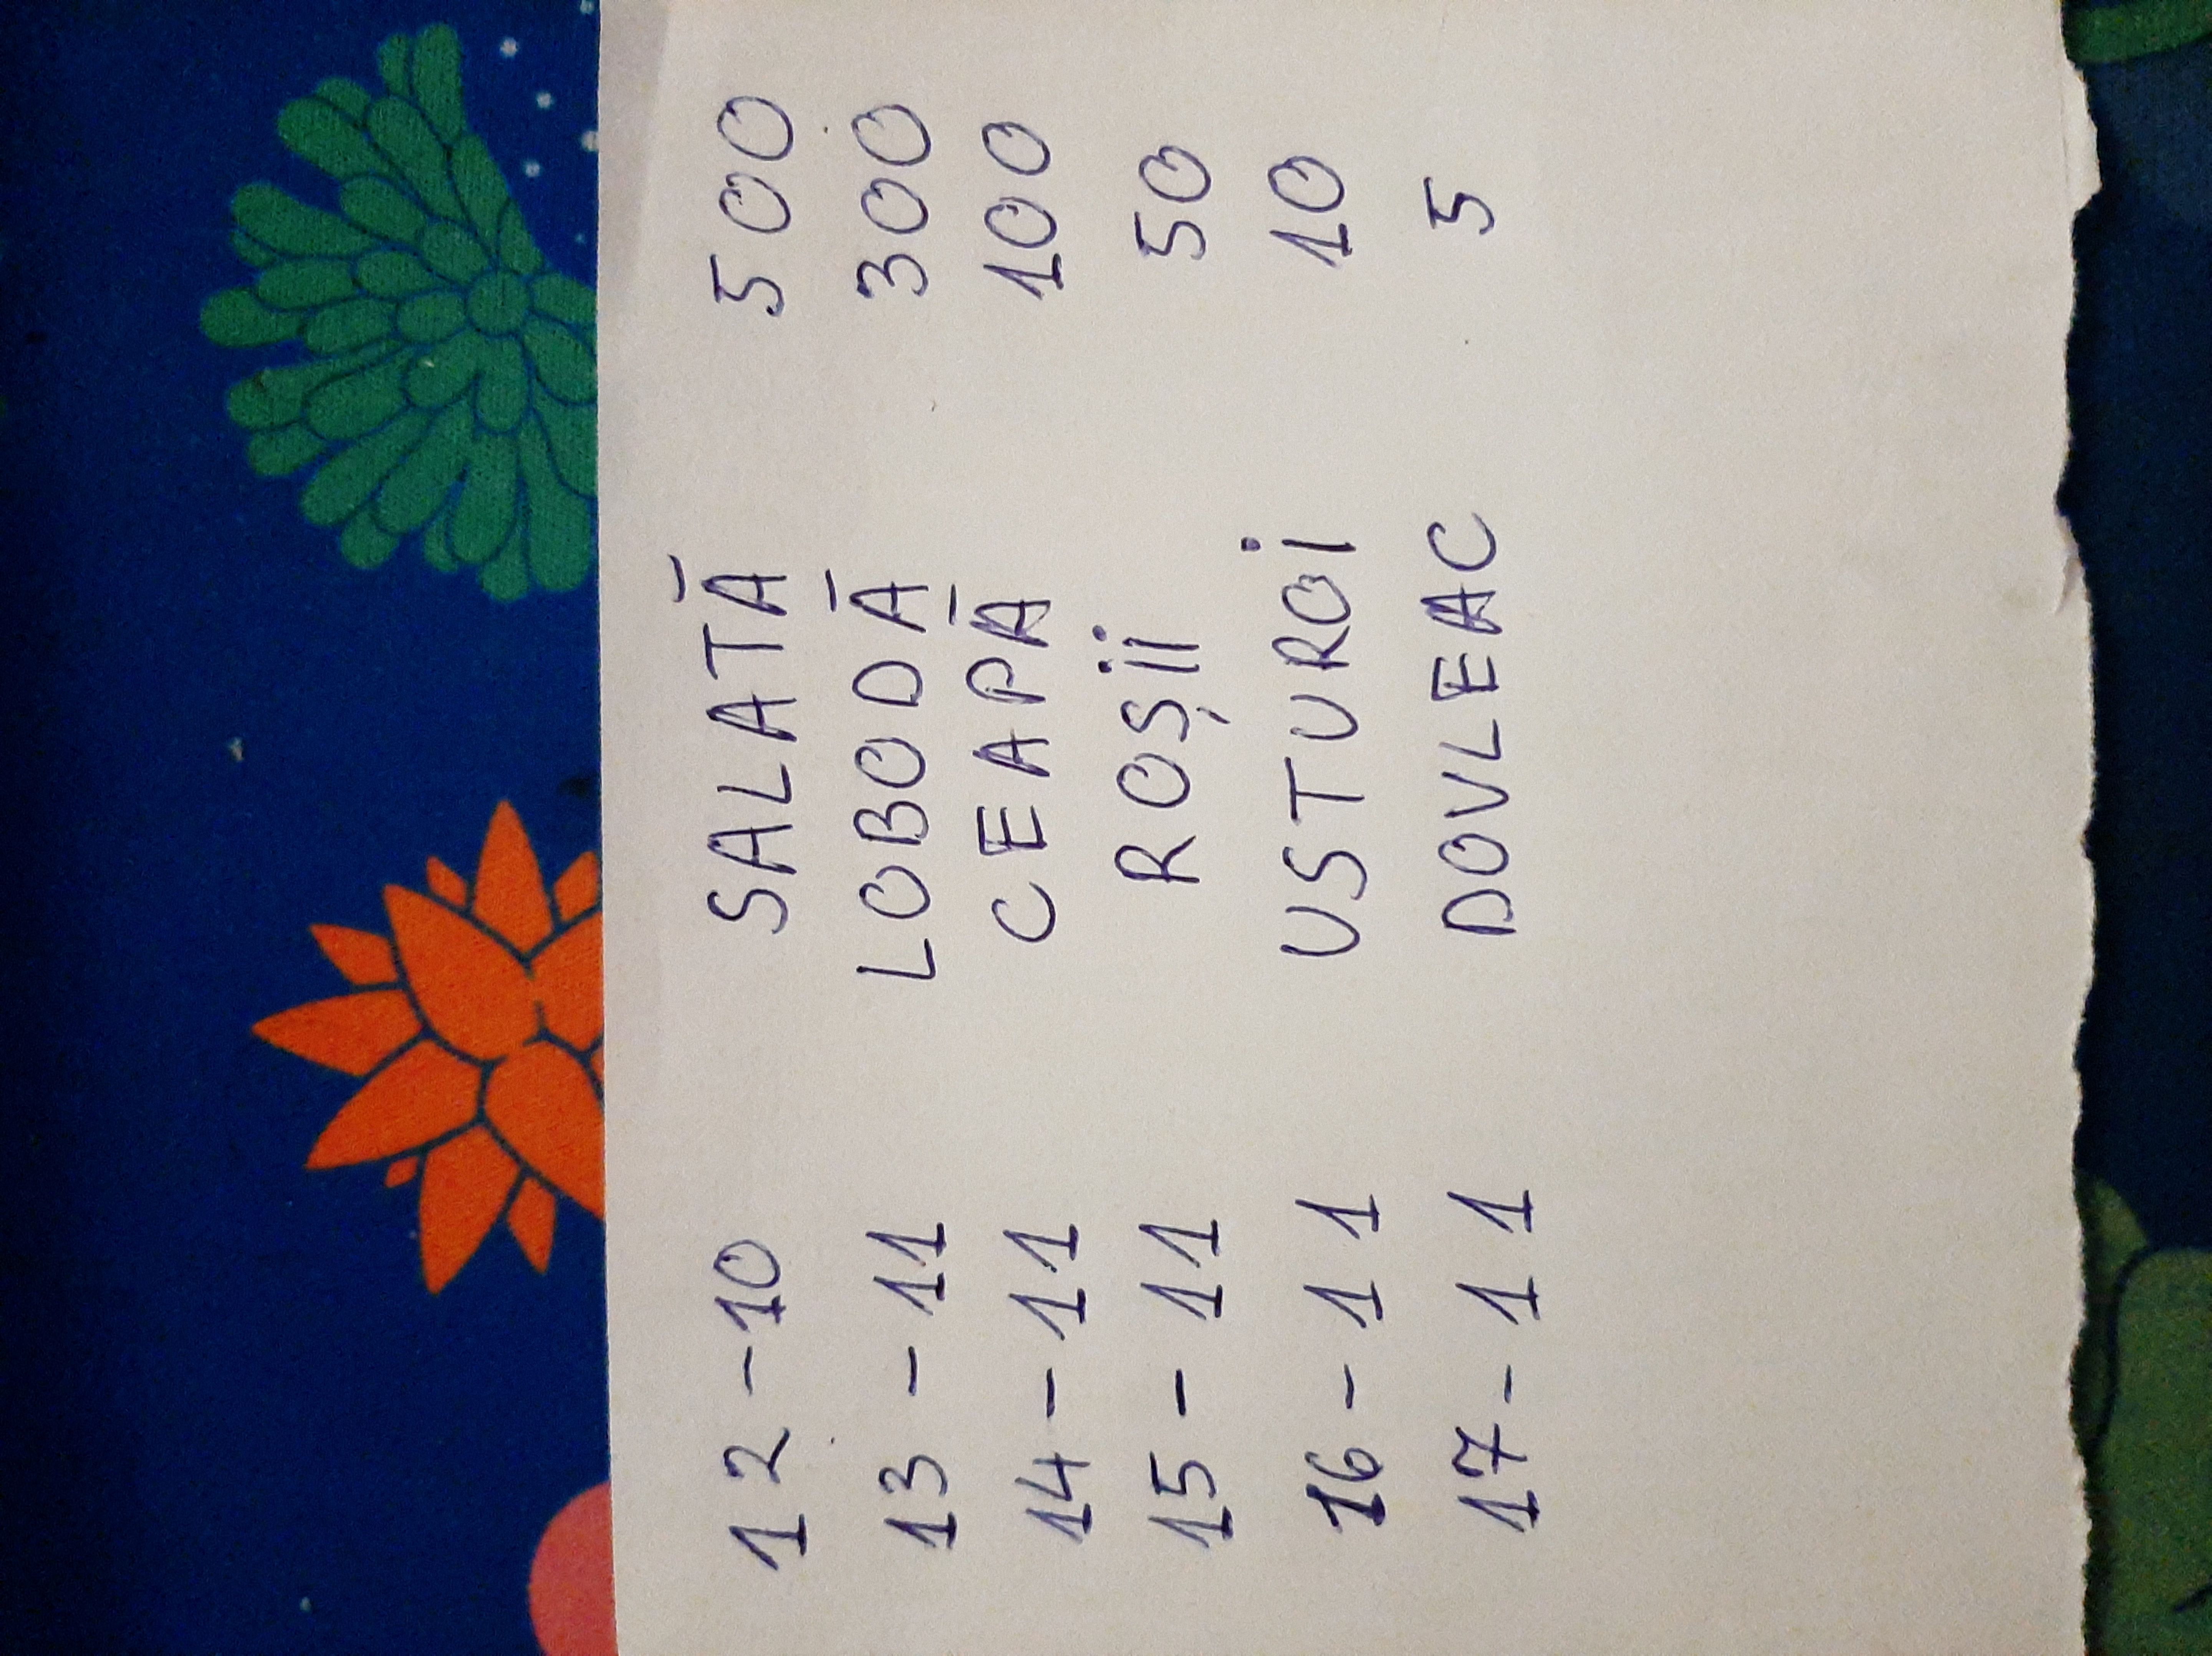 12-10 SALATĂ 500
13-11 LOBODĂ 300
14-11 CEAPĂ 100
15-11 ROȘII 50
16-11 USTUROI 10
17-11 DOVLEAC 5